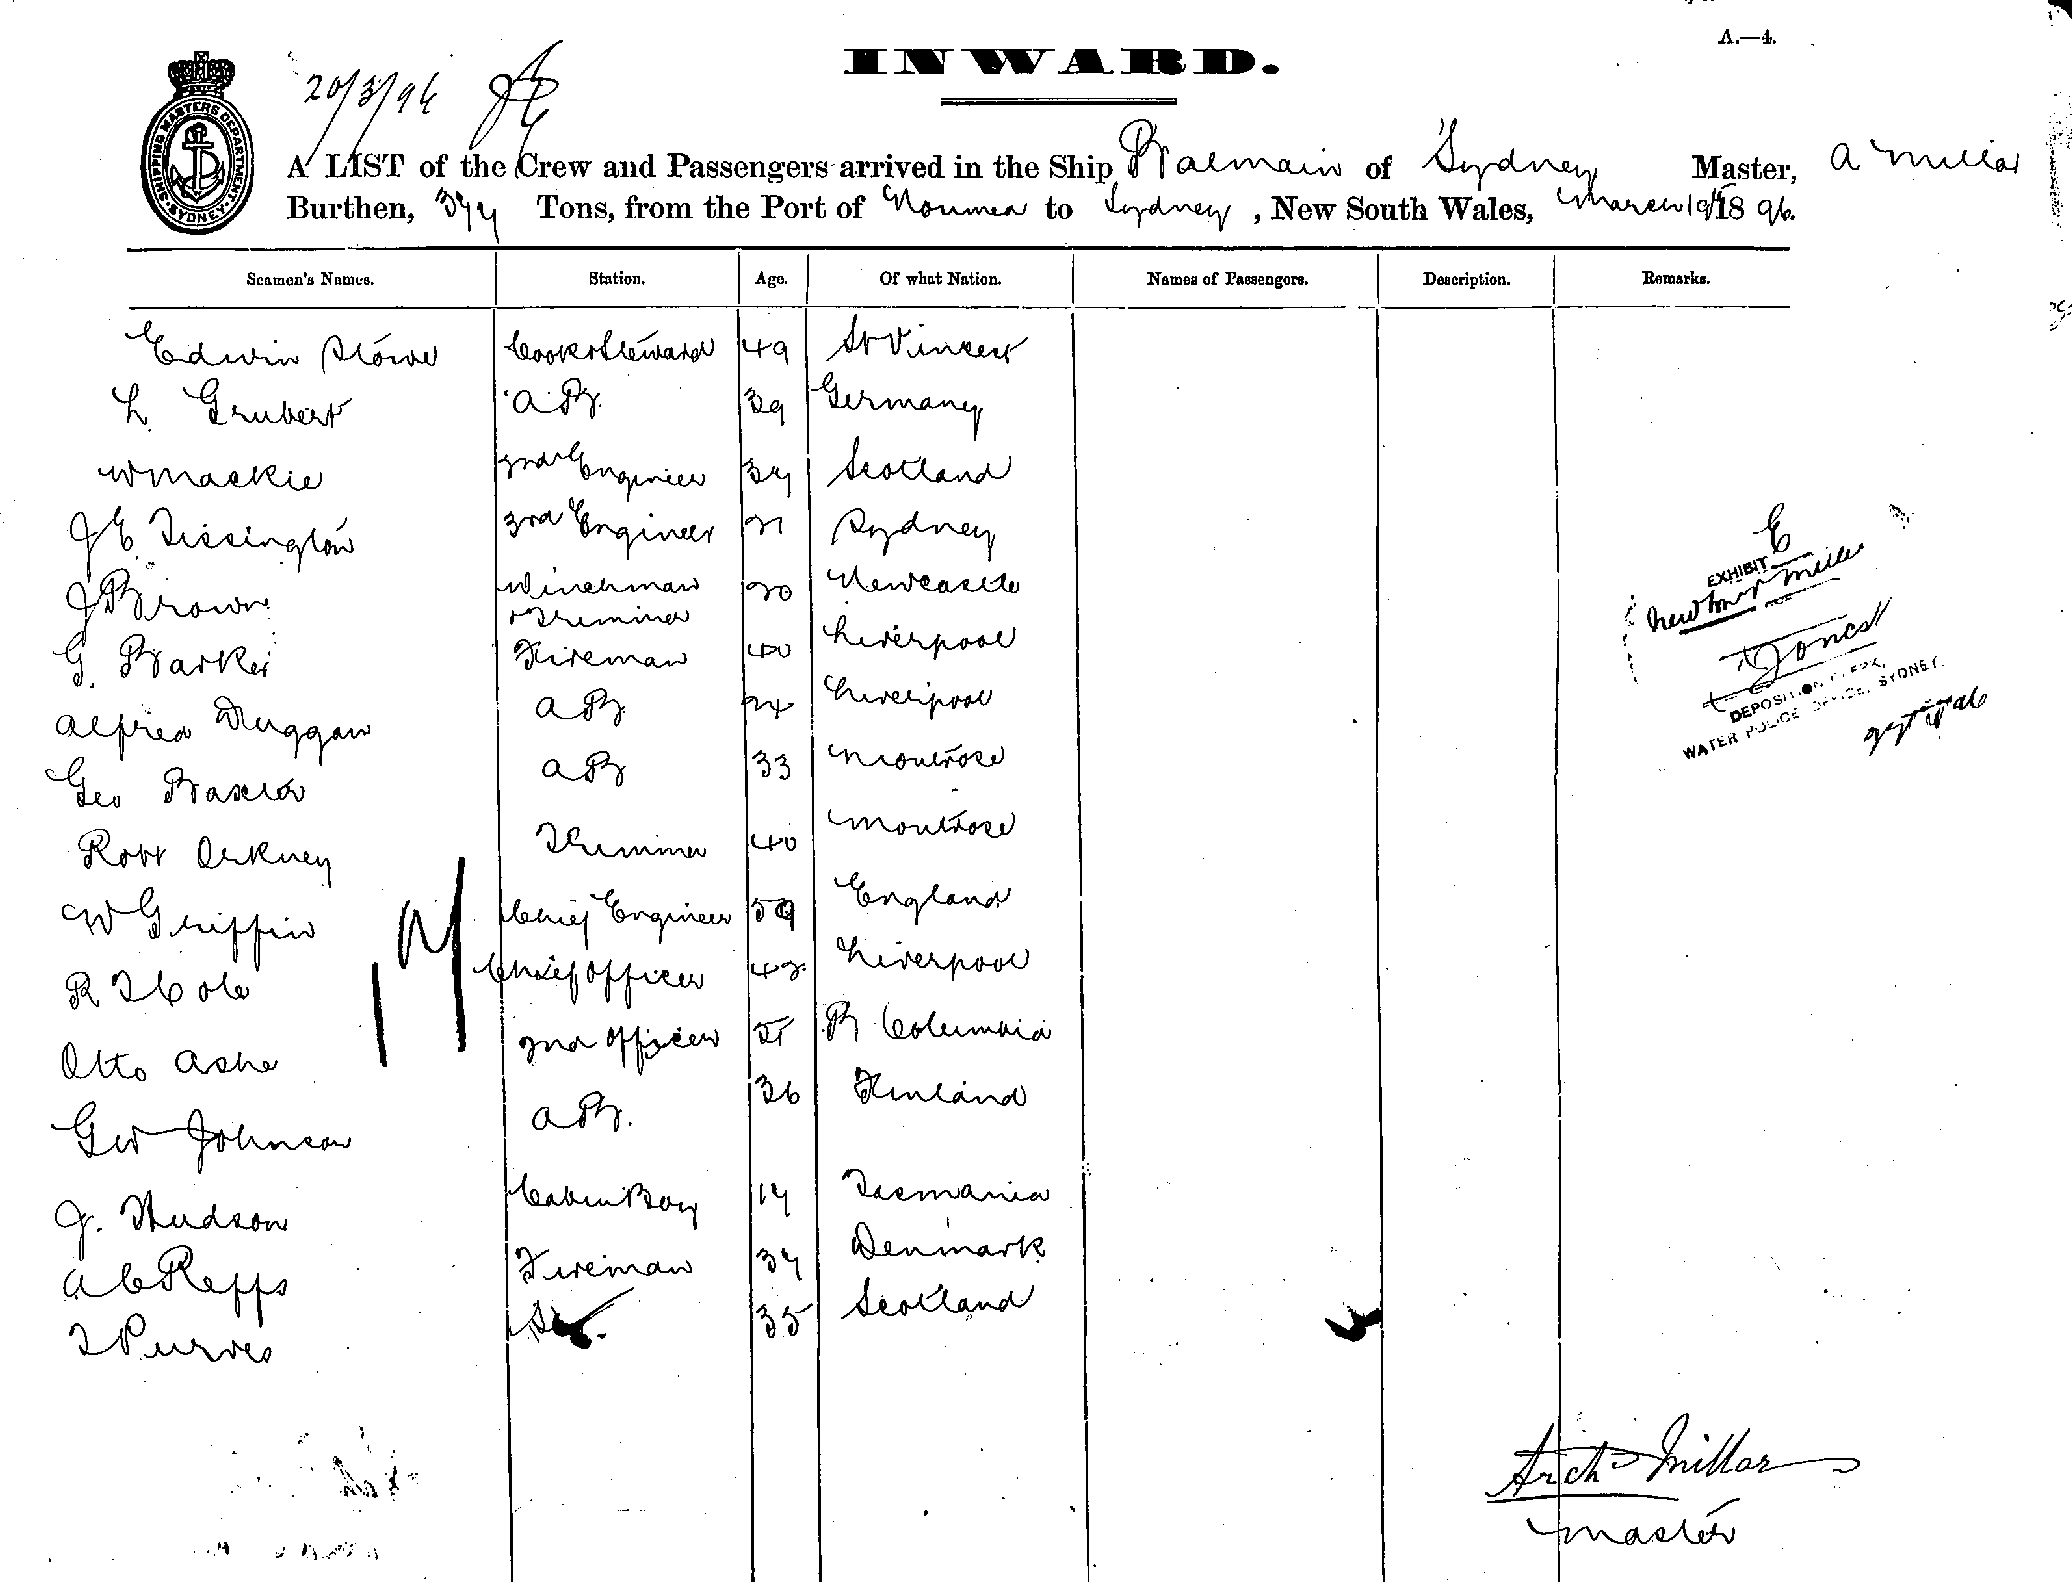 A.—4.
INWARD.
20/3/96
SHIPPING MASTERS DEPARTMENT. SYDNEY.
A LIST of the Crew and Passengers arrived in the Ship Balmain of Sydney Master, A Millar
Burthen, 377 Tons, from the Port of Noumea to Sydney, New South Wales, March 19th 1896.
Seamen's Names. Station. Age. Of what Nation. Names of Passengers. Description. Remarks.
Edwin Stowe Cook & Steward 49 St Vincent
L. Grubert A B. 39 Germany
W Mackie 2nd Engineer 37 Scotland
J E. Tissington 3rd Engineer 21 Sydney
J Brown Winchman & Trimmer 20 Newcastle
G. Barker Fireman 40 Liverpool
Alfred Duggan A B 24 Liverpool
Geo Baxter A B 33 Montrose
Robt Orkney Trimmer 40 Montrose
W Griffin Chief Engineer 59 England
R T Cole Chief Officer 42 Liverpool
Otto Ashe 2nd Officer 51 B Columbia
Geo Johnson A B. 36 Finland
J. Hudson Cabin Boy 17 Tasmania
A C Repps Fireman 37 Denmark
T Purves 35 Scotland
EXHIBIT E
Jones
DEPOSITION CLERK,
WATER POLICE OFFICE, SYDNEY.
Archd Millar
Master